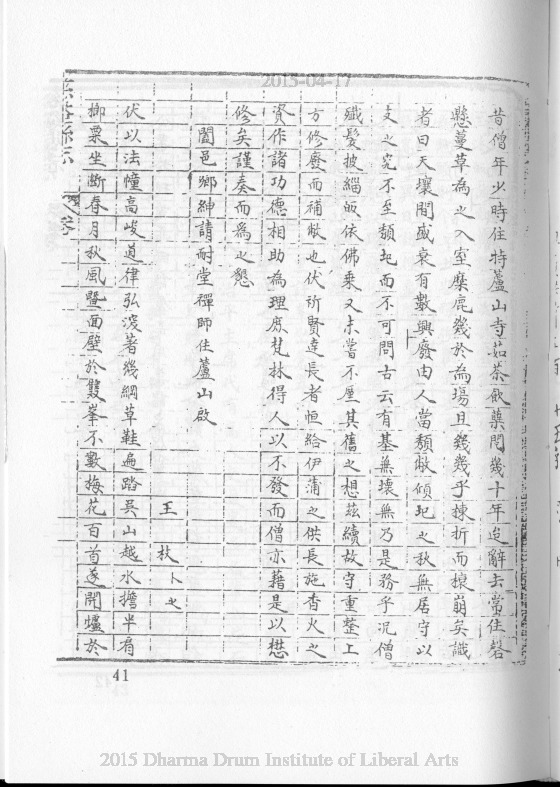 2015-04-17
昔僧年少時住持蘆山寺茹荼飲蘗閱幾十年迨辭去常住磬
懸蔓草為之入室麋鹿幾於為場且幾幾乎棟折而榱崩矣識
者曰天壤間盛衰有數興廢由人當頹敝傾圮之秋無居守以
支之究不至頹圮而不可問古云有基無壞無乃是務乎況僧
殲髮披緇皈依佛乘又未嘗不厪其舊之想茲續故守重整上
方修廢而補敝也伏祈賢達長者恒給伊蒲之供長施香火之
資作諸功德相助為理庶梵林得人以不發而僧亦藉是以懋
修矣謹奏而為之懇
闔邑鄉紳請耐堂禪師住蘆山啟
王 枚卜之
伏以法幢高峻道律弘深著幾綱草鞋遍踏吳山越水擔半肩
楖栗坐斷春月秋風暨面壁於雙峯不數梅花百首遂開爐於
41
2015 Dharma Drum Institute of Liberal Arts